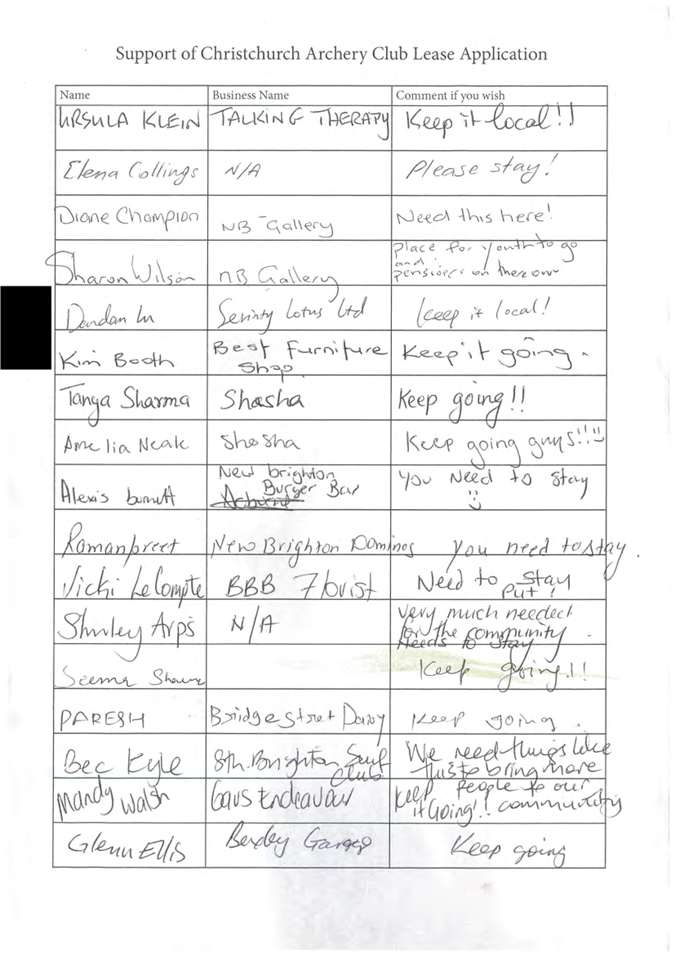 Support of Christchurch Archery Club Lease Application
Name Business Name Comment if you wish
URSULA KLEIN TALKING THERAPY Keep it local!!
Elena Collings N/A Please stay!
Diane Champion NB Gallery Need this here!
Sharon Wilson NB Gallery place for youth to go
and
pensioners on there own
Dandan Lu Serinty Lotus Ltd keep it local!
Kim Booth Best Furniture Keep it going.
Shop
Tanya Sharma Shosha Keep going!!
Amelia Neak Shosha Keep going guys!!!
New brighton You Need to stay
Alexis Burger Bar
Ramanpreet New Brighton Dominos you need to stay.
Vicki LeCompte BBB Florist Need to stay
put!
Shirley Arps N/A Very much needed
for the community
Needs to stay
Seema Keep going!!
PARESH Bridge Street Dairy Keep going.
Bec Kyle Sth. Brighton Surf We need things like
Club this to bring more
Mandy Walsh Endeavour Keep people to our
it Going!! community
Glenn Ellis Keep going